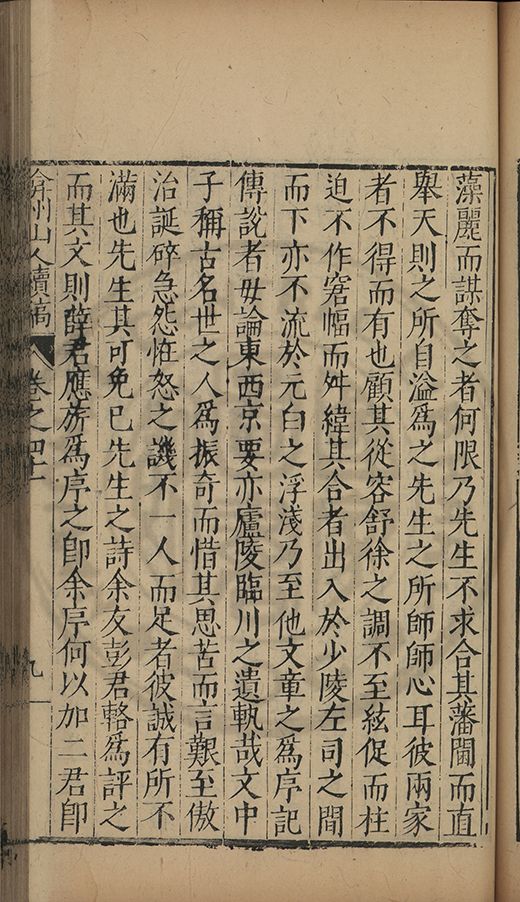 藻麗而謀奪之者何限乃先生不求合其藩閫而直
舉天則之所自溢爲之先生之所師師心耳彼兩家
者不得而有也顧其從容舒徐之調不至絃促而柱
迫不作窘幅而舛緯其合者出入於少陵左司之間
而下亦不流於元白之浮淺乃至他文章之爲序記
傳說者毋論東西京要亦廬陵臨川之遺軌哉文中
子稱古名世之人爲振奇而惜其思苦而言艱至傲
治誕碎急怨怪怒之譏不一人而足者彼誠有所不
滿也先生其可免已先生之詩余友彭君輅爲評之
而其文則薛君應旂爲序之卽余序何以加二君卽
弇州山人續稿 卷之四十 九